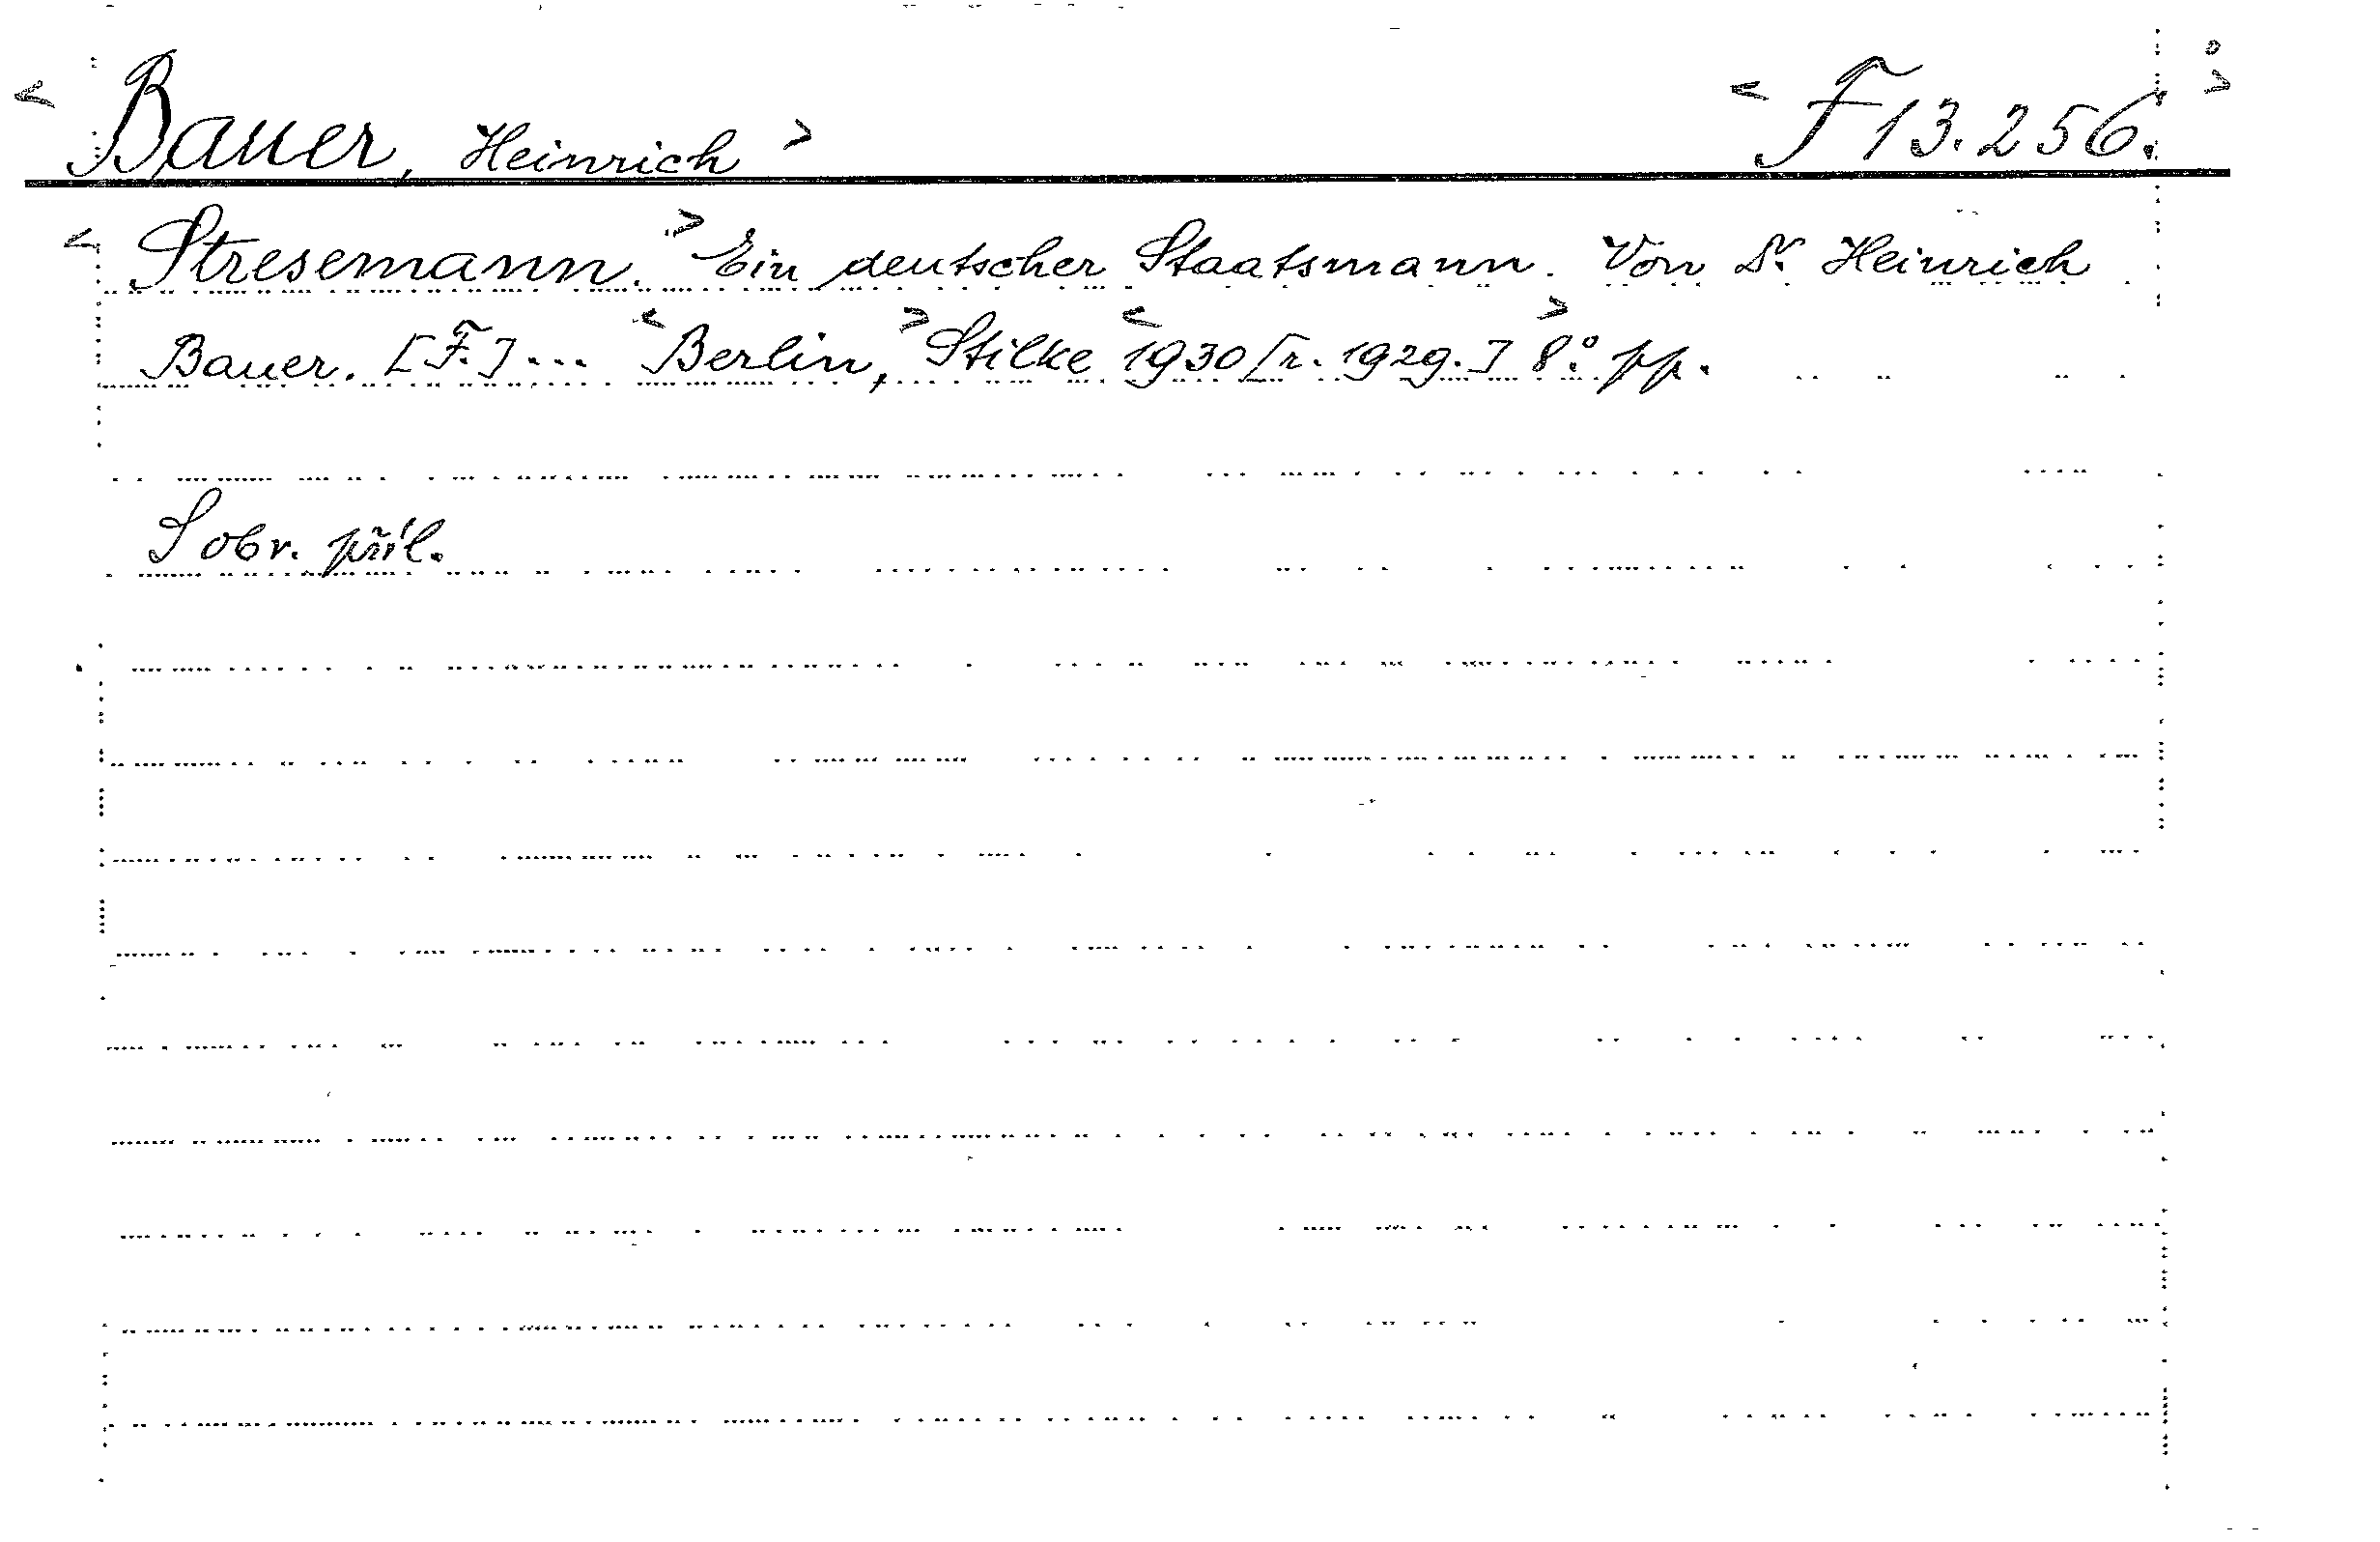 < Bauer, Heinrich > < F 13.256. >
< Stresemann. > Ein deutscher Staatsmann. Von Dr. Heinrich
Bauer. [F.] ... < Berlin, > Stilke < 1930 [r. 1929.] 8.° > pp.
S obr. příl.